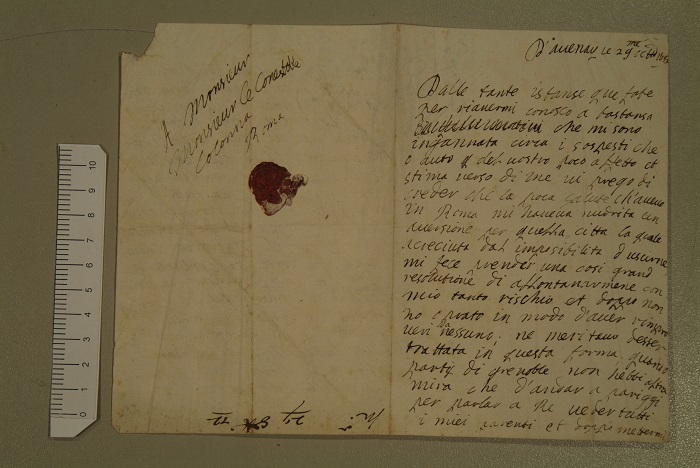 A Monsieur
Monsieur le Conestable
Colonna
Roma
D'auenay le 29me
Dalle tante istanse que fate
per riauermi conosco a bastansa
che mi sono
ingannata circa i sospetti che
o auto del vostro poco affetto et
stima verso di me vi prego di
creder che la poca salute ch'aueuo
in Roma mi haueua nudrita un
auersione per quella citta la quale
acreciuta dal imposibilita d'uscirne
mi fece prender una cosi grand
resolutione di allontanarmene con
mio tanto rischio et doppo non
ho operato in modo d'auer
nessuno, ne meritauo d'esser
trattata in questa forma, quando
party di grenoble non hebbi altra
mira che d'andar a pariggi
per parlar a Re ueder tutti
i miei parenti et doppo mettermi